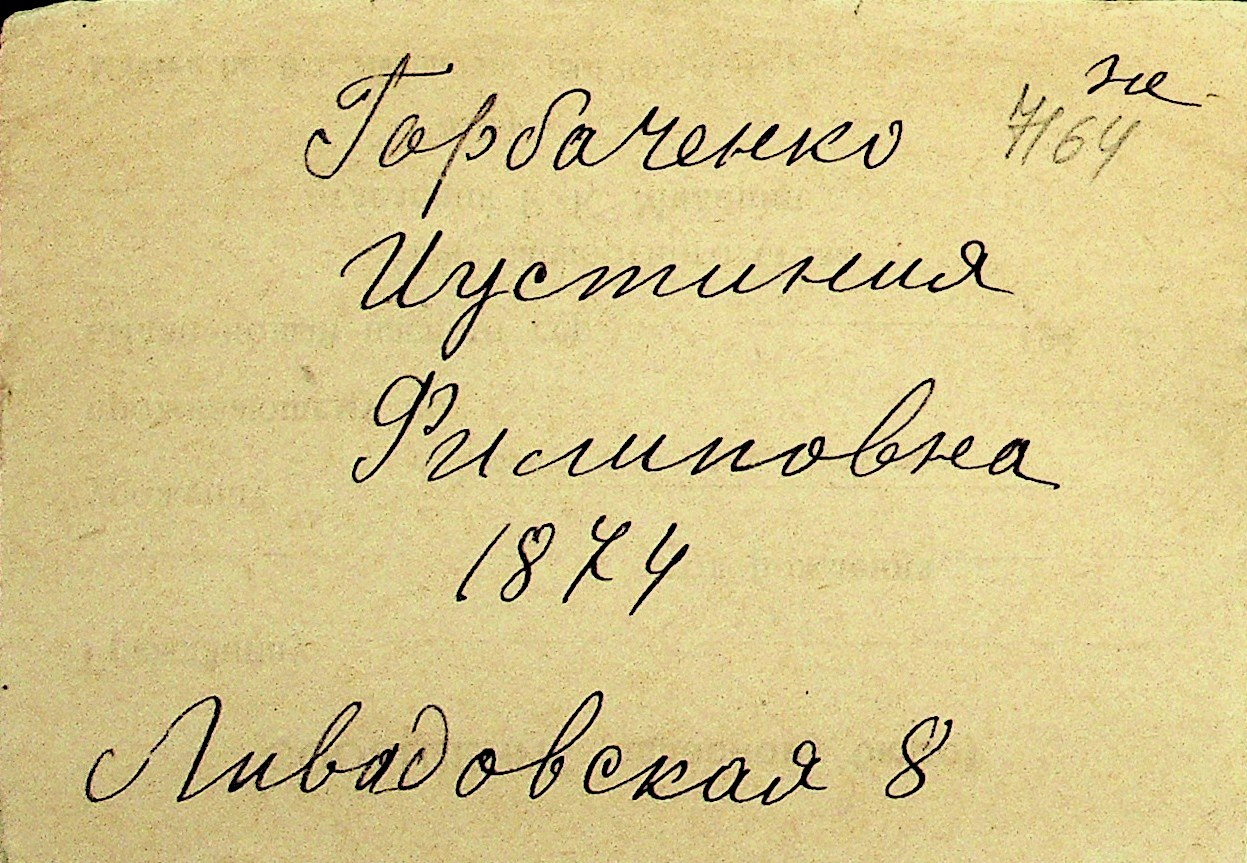 не
Горбаченко 7164
Иустиния
Филиповна
1874
Ливадовская 8